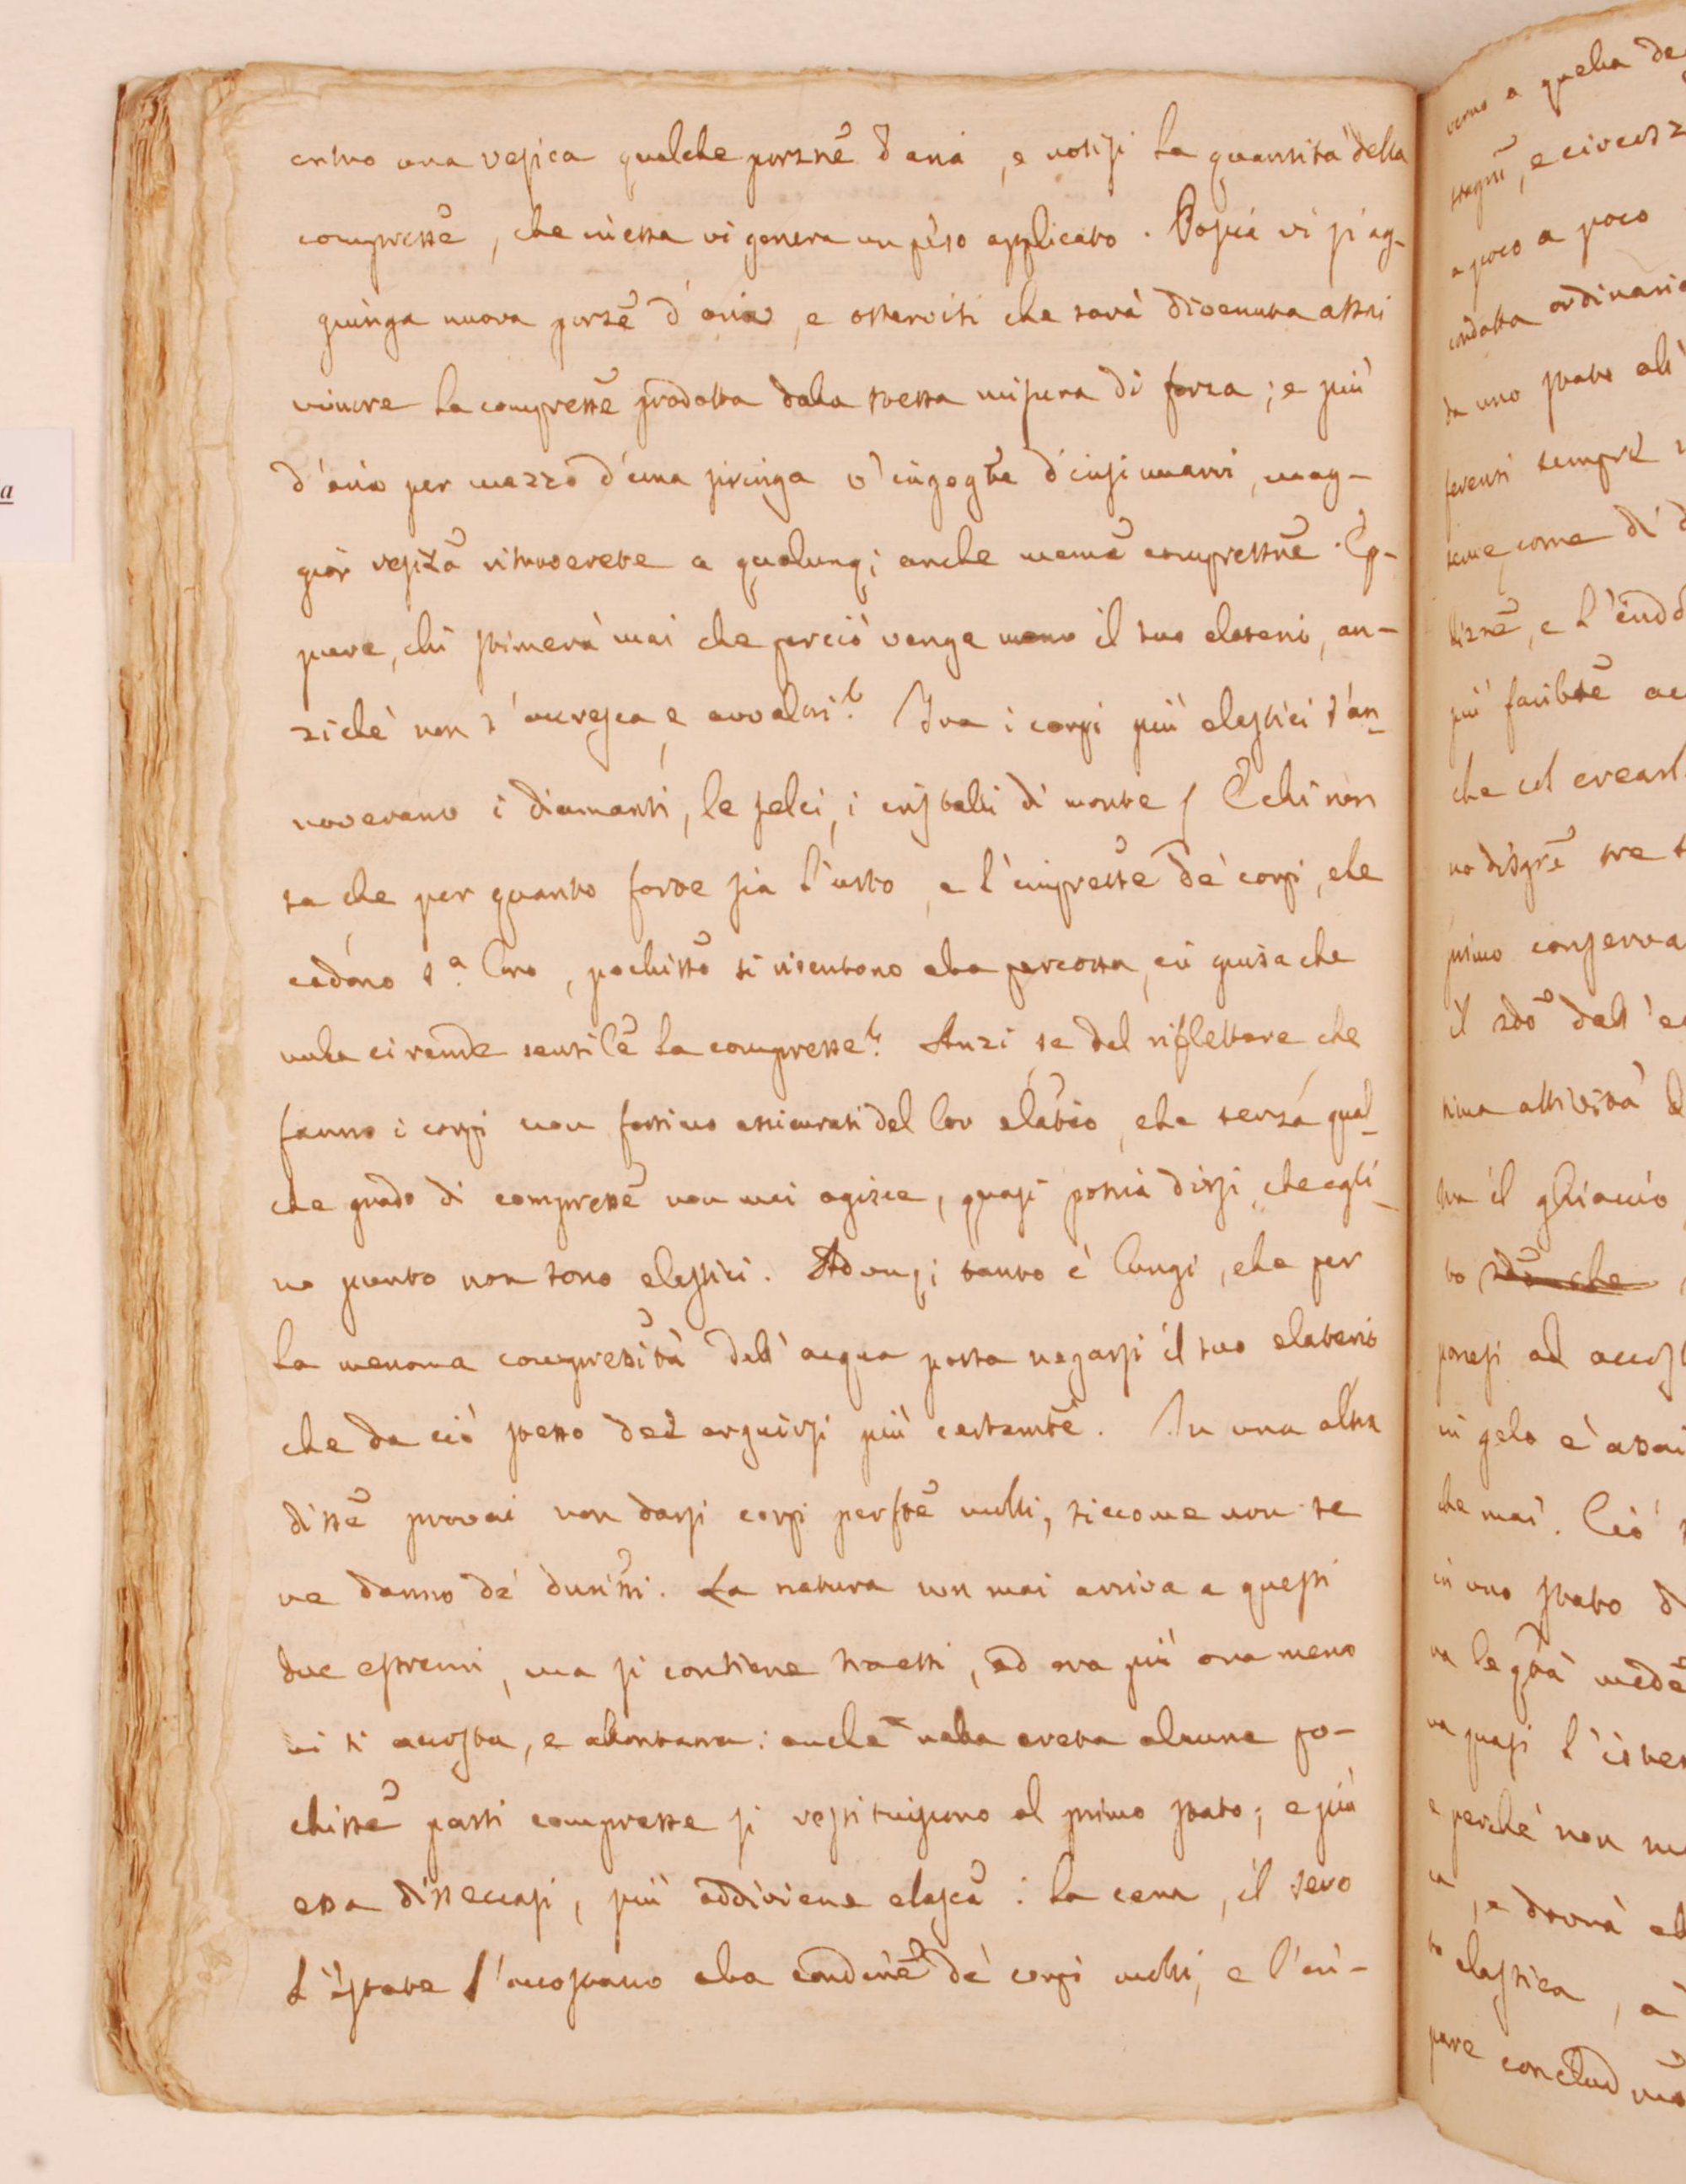 entro una vesica qualche porzne d'aria, e notisi la quantità della
compresse, che in essa vi genera un peso applicato. Poscia vi si ag-
giunga nuova porze d'aria, e osservisi che sarà divenuta assai
minore la compresse prodotta dalla stessa misura di forza; e più
d'aria per mezzo d'una siringa v'ingegte d'insinuarvi, mag-
gior resiza ritroverete a qualunq; anche menma compressne. Ep-
pure, chi stimerà mai che perciò venga meno il suo elaterio, an-
zichè non s'accresca, e avvalori? Fra i corpi più elastici s'an-
noverano i diamanti, le selci, i cristalli di monte / E chi non
sa che per quanto forte sia l'urto, e l'impresse de' corpi, che
cadono s.a loro, pochisso si risentono alla percossa, in guisa che
nulla ci rende sensile la compresse? Anzi se dal riflettere, che
fanno i corpi non fossimo assicurati del lor elatrio, che senza qual-
che grado di compresse non mai agisce, quasi potria dirsi, che egli-
no punto non sono elastici. Adunq; tanto è lungi, che per
la menoma compressità dell'acqua possa negarsi il suo elaterio
che da ciò stesso dee arguirsi più certamte. In una altra
disse provai non darsi corpi perfte molli, siccome non se
ne danno de' durissi. La natura non mai arriva a questi
due estremi, ma si contiene tra essi, ed ora più ora meno
vi si accosta, e allontana: anche nella creta alcune po-
chisse parti compresse si restituiscono al primo stato; e più
essa disseccasi, più addiviene elasca: la cera, il sevo
l'estate s'accostano alla condine de' corpi molli, e l'in-
verno a quella de
stagni, e circos
a poco a poco
condotta ordinaria
da uno stato all'
ferensi sempre
seme, come di d
dizne, e l'indo
più facilte ac
che col crear
no disgre tre
primo conserva
il zdo dall'
tima attività
tra il ghiaccio
to
ponesi ad accos
in gelo è assai
che mai. Ciò
in uno stato d
na le qtà mede
na quasi l'ister
e perchè non
, e dovrà
elastica, a
pare conclud
a